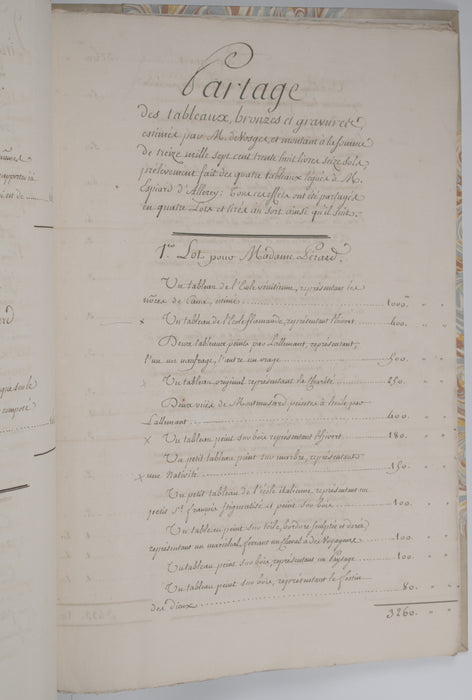 Partage
des tableaux, bronzes et gravures,
estimés par M. deVosges, et montant à la somme
de treize mille sept cent trente huit livres seize sols,
prélevement fait des quatre tableaux légués à M.
Espiard d'Allerey; Tous ces effets ont été partagés
en quatre Lots et tirés au sort ainsi qu'il suit.
1er Lot pour Madame Lérard.
Un tableau de l'Ecole vénitienne, représentant les
nôces de Cana, estimé 1000tt
x Un tableau de l'Ecole flamande, représentant l'hivert 400.
Deux tableaux peints par Lallemant, représentant,
l'un un naufrage, l'autre un orage 500.
x Un tableau original représentant la Charité 250.
Deux vües de Montmusard peintes à huile par
Lallemant 400.
x Un tableau peint sur bois représentant l'hivert 180.
Un petit tableau peint sur marbre, représentant
x une Nativité 150.
Un petit tableau de l'école italienne, représentant un
petit St françois stigmatisé et peint sur bois 100.
Un tableau peint sur toile, bordure sculptée et dorée
représentant un maréchal, ferrant un cheval à des Voyageurs 100.
Un tableau peint sur bois, représentant un Paysage 100.
Un tableau peint sur bois, représentant le festin
des dieux 80.
3260.